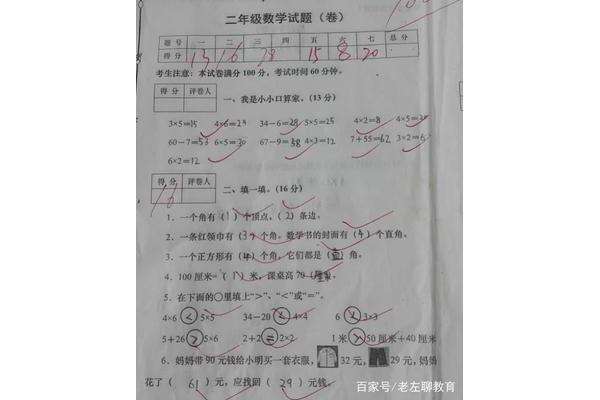 二年级数学试题（卷）
题号 一 二 三 四 五 六 七 总分
得分 13 16 28 15 8 20
考生注意：本试卷满分100分，考试时间60分钟。
得分 评卷人
一、我是小小口算家。（13分）
3×5=15 4×6=24 34-6=28 5×5=25 4×2=8 4×5=20
60-7=53 6×5=30 67-9=58 4×3=12 7+55=62 3×2=6
6×2=12
得分 评卷人
16
二、填一填。（16分）
1．一个角有（1）个顶点，（2）条边。
2．一条红领巾有（3）个角。数学书的封面有（4）个直角。
3．一个正方形有（4）个角，它们都是（直）角。
4．100厘米=（1）米，课桌高70（厘米）
5．在下面的○里填上“>”、“<”或“=”。
4×6 < 5×5 34-20 < 4×4 6 < 3×3
5+26 > 5×6 2+2 = 2×2 1米 > 50厘米+40厘米
6．妈妈带90元钱给小明买一套衣服， 32元， 29元，妈妈
花了（61）元，应找回（29）元钱。
百家号/老左聊教育